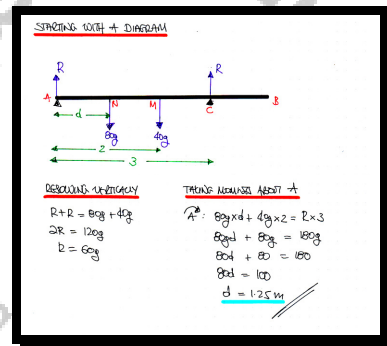 STARTING WITH A DIAGRAM
R R
A N M C B
d
80g 40g
2
3
RESOLVING VERTICALLY
R+R = 80g + 40g
2R = 120g
R = 60g
TAKING MOMENTS ABOUT A
A: 80g×d + 40g×2 = R×3
80gd + 80g = 180g
80d + 80 = 180
80d = 100
d = 1.25 m